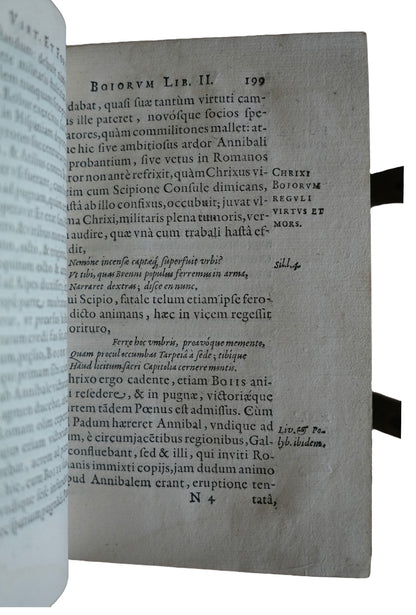 BOIORVM LIB. II. 199
dabat, quasi suæ tantùm virtuti cam-
us ille pateret, novósque socios spe-
atores, quàm commilitones mallet: at-
e hic sive ambitiosus ardor Annibali
probantium, sive vetus in Romanos
ror non antè refrixit, quàm Chrixus vi-
im cum Scipione Consule dimicans,
stâ ab illo confixus, occubuit; juvat vl-
ma Chrixi, militaris plena tumoris, ver-
audire, quæ vnà cum trabali hastâ ef-
dit,
CHRIXI
BOIORVM
REGVLI
VIRTVS ET
MORS.
Nemóne incensæ captæq, superfuit vrbi?
Vt tibi, quas Brenni populus ferremus in arma,
Narraret dextras; disce en nunc.
Sil.l.4.
ui Scipio, fatale telum etiam ipse fero-
dicto animans, hæc in vicem regessit
orituro,
Ferre hic vmbris, proavóque memento,
Quam procul occumbas Tarpeiâ à sede; tibique
Haud licitum sacri Capitolia cernere montis.
hrixo ergo cadente, etiam BOIIS ani-
refedere, & in pugnæ, victoriæque
artem tãdem Pœnus est admissus. Cùm
Padum hæreret Annibal, vndique ad
um, è circumjacẽtibus regionibus, Gal-
confluebant, sed & illi, qui inviti Ro-
anis immixti copijs, jam dudum animo
pud Annibalem erant, eruptione ten-
Liv. & Po-
lyb. ibidem.
N 4 tatâ,